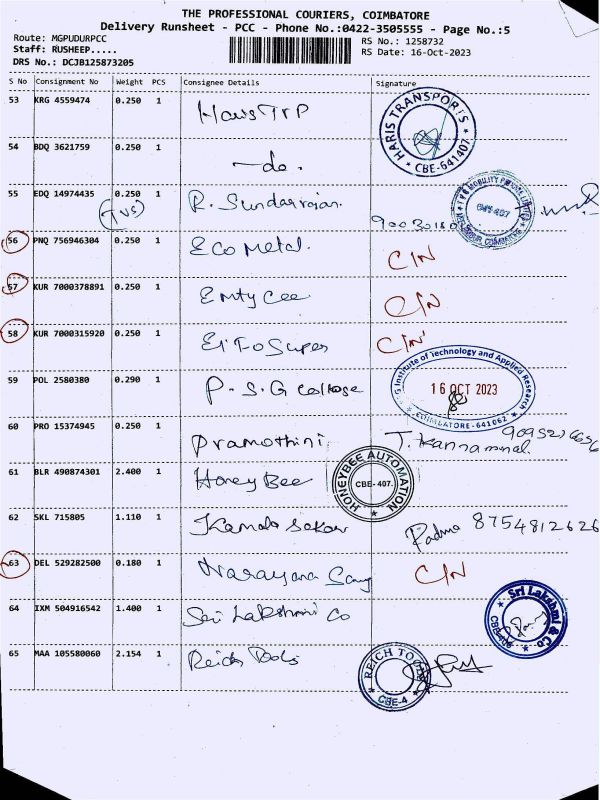 THE PROFESSIONAL COURIERS, COIMBATORE
Delivery Runsheet - PCC - Phone No.:0422-3505555 - Page No.:5
Route: MGPUDURPCC RS No.: 1258732
Staff: RUSHEEP..... RS Date: 16-Oct-2023
DRS No.: DCJB125873205
S No Consignment No Weight PCS Consignee Details Signature
53 KRG 4559474 0.250 1 HARIS TRANSPORTS * CBE-641407 *
54 BDQ 3621759 0.250 1 -do.
55 EDQ 14974435 0.250 1 R. Sundarrajan
(TVS)
56 PNQ 756946304 0.250 1 Eco Metal. C/N
57 KUR 7000378891 0.250 1 Emty Cee C/N
58 KUR 7000315920 0.250 1 C/N
59 POL 2580380 0.290 1 P.S.G College Institute of Technology and Applied Research 16 OCT 2023 COIMBATORE-641062
60 PRO 15374945 0.250 1 Pramothini T. Kannammal.
61 BLR 490874301 2.400 1 Honey Bee HONEYBEE AUTOMATION CBE-407.
62 SKL 715805 1.110 1 Padma 8754812626
63 DEL 529282500 0.180 1 Narayana C/N
64 IXM 504916542 1.400 1 Sri Lakshmi Co Sri Lakshmi & Co
65 MAA 105580060 2.154 1 Reich Tools REICH TOOLS CBE-4